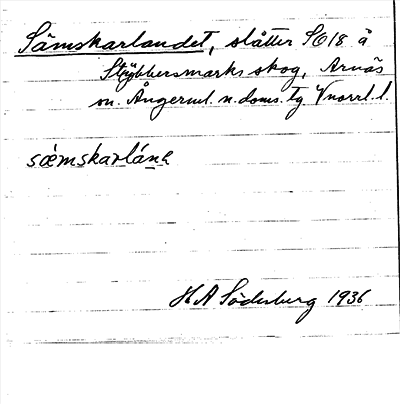 Sämskarlandet, slåtter SO 18 å
Stybbersmarks skog, Arnäs
sn. Ångerml. n. doms. tg. V norrl. l.
sǽmskarlána
H A Söderberg 1936